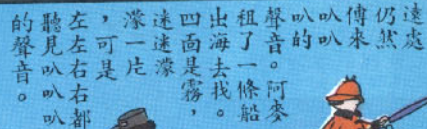 遠處
仍然
傳來
叭叭
叭的
聲音。阿麥
租了一條船
出海去找。
四面是霧，
迷迷濛
濛一片
，可是
左左右右都
聽見叭叭叭
的聲音。